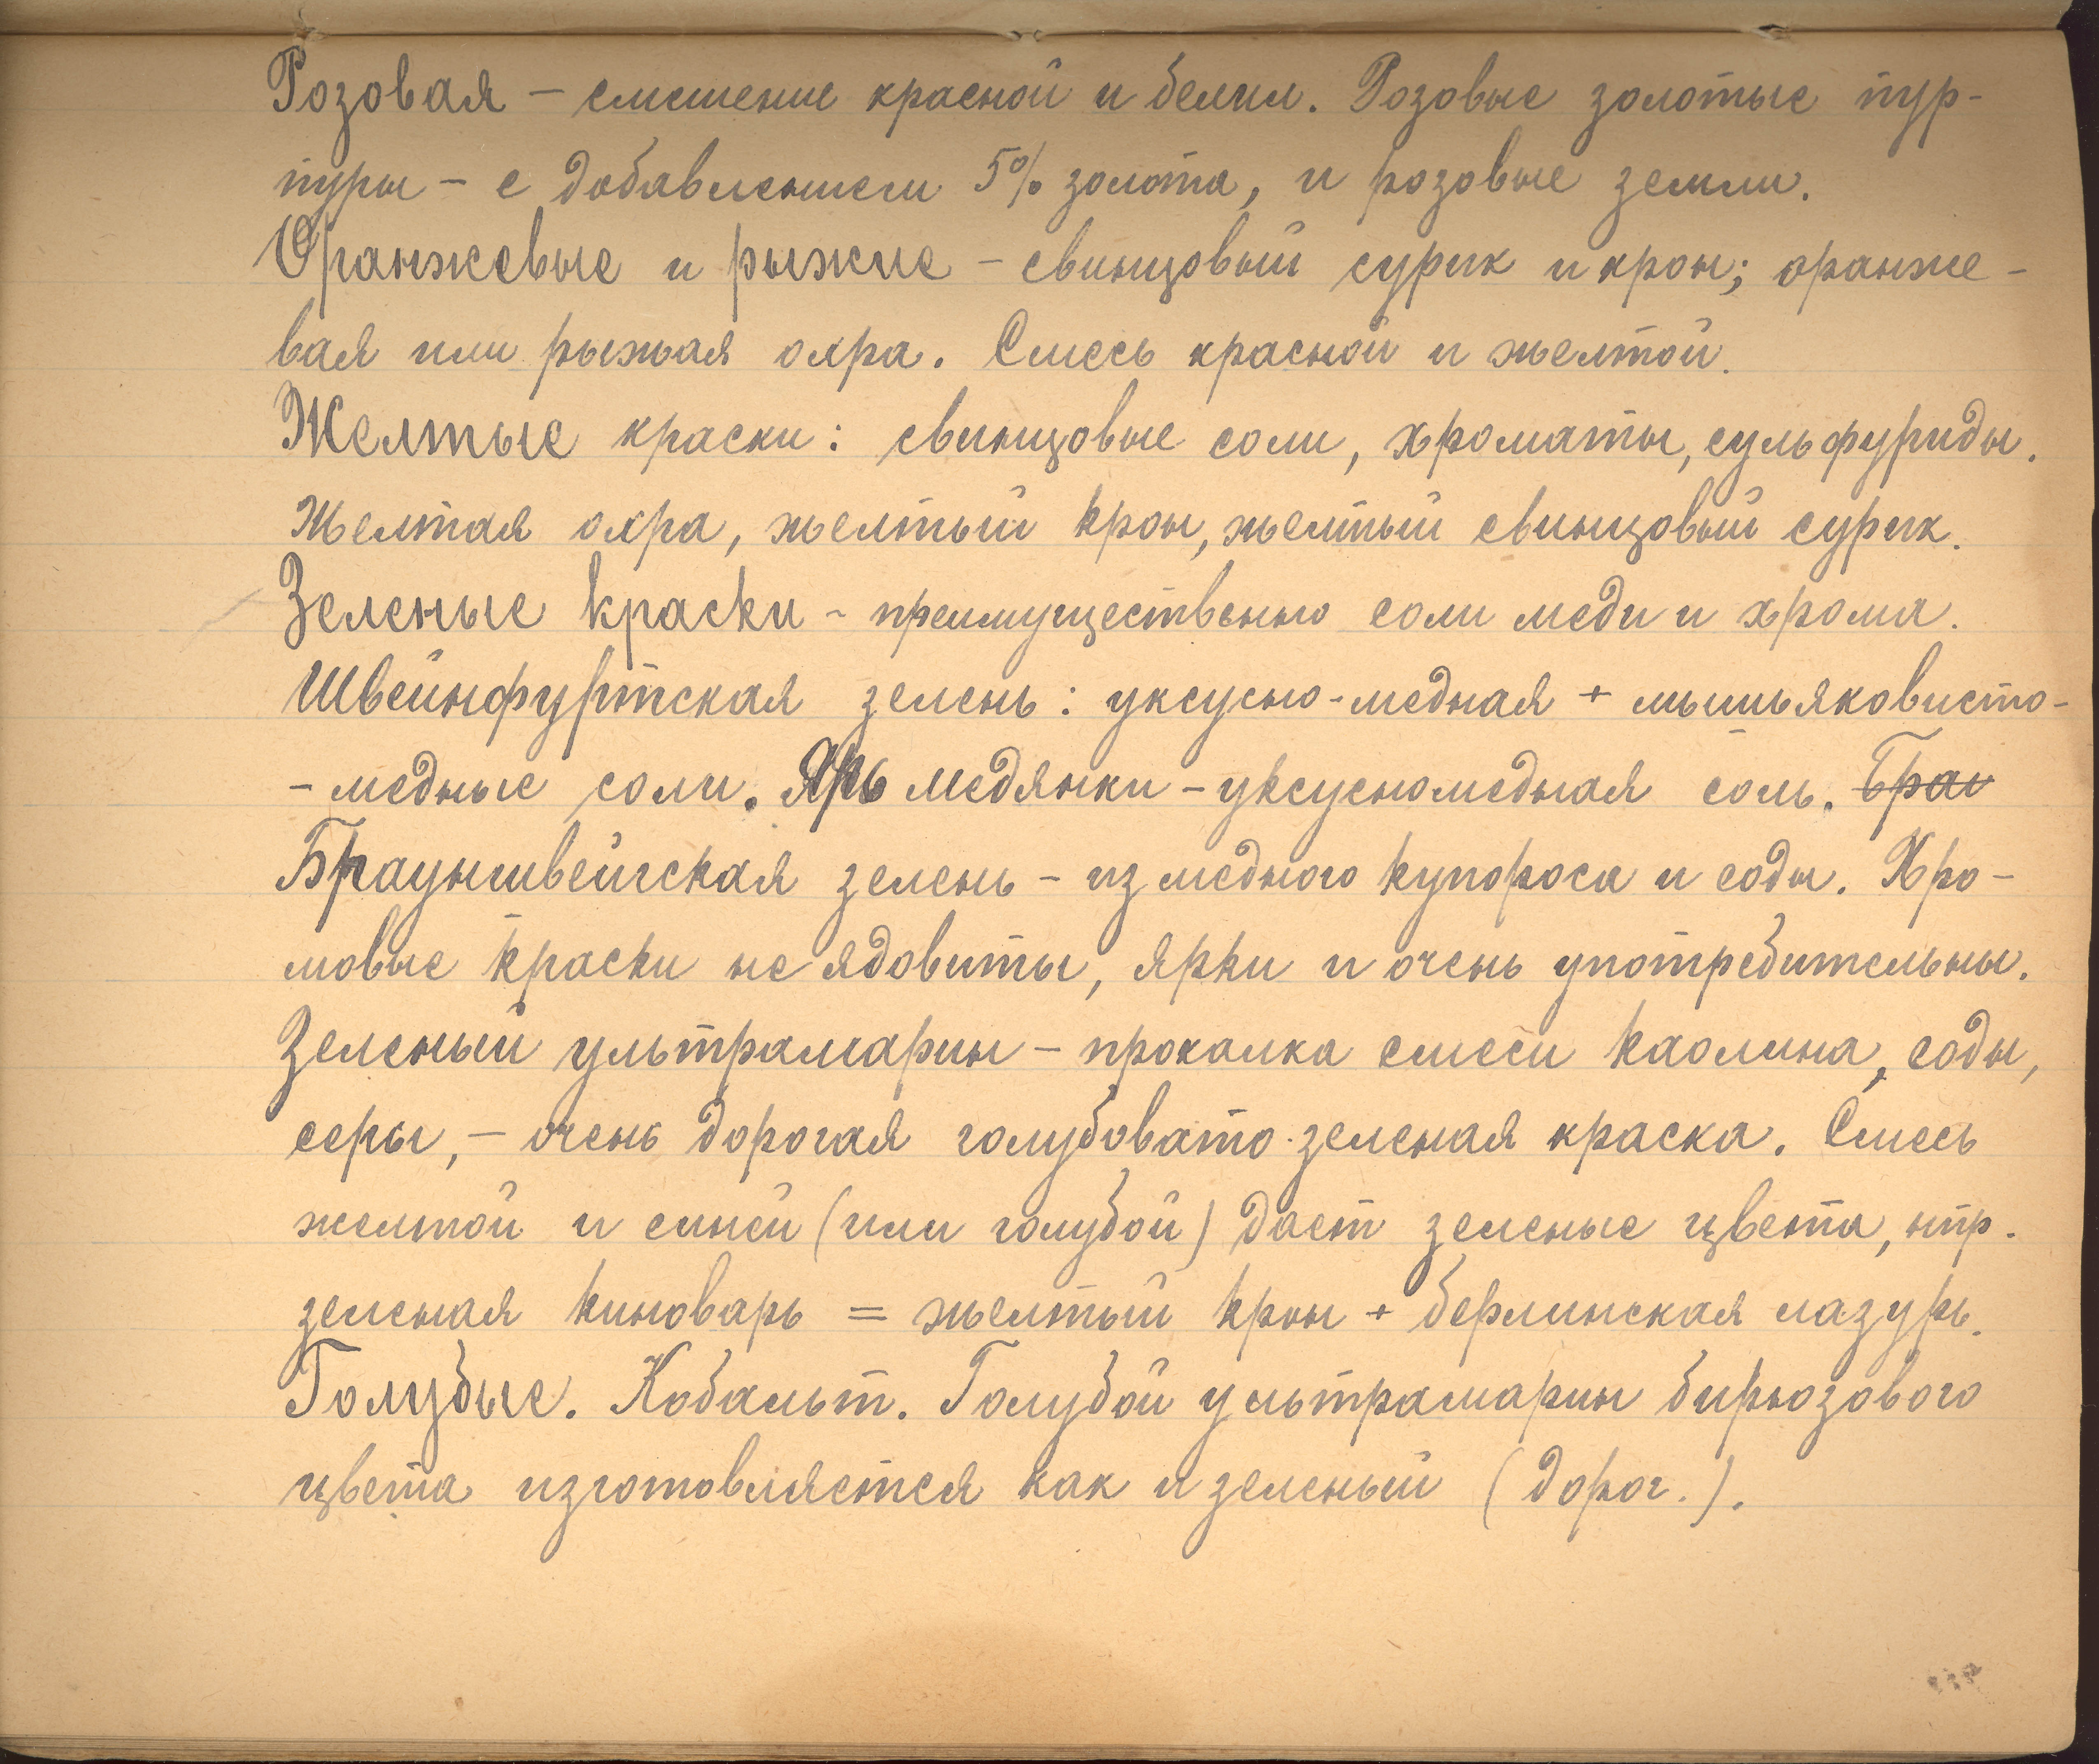 Розовая – смешение красной и белил. Розовые золотые пур-
пуры – с добавлением 5% золота, и розовые земли.
Оранжевые и рыжие – свинцовый сурик и крон; оранже-
вая или рыжая охра. Смесь красной и желтой.
Желтые краски: свинцовые соли, хроматы, сульфуриды.
Желтая охра, желтый крон, желтый свинцовый сурик.
Зеленые краски – преимущественно соли меди и хрома.
Швейнфуртская зелень: уксусно-медная + мышьяковисто-
-медные соли. Ярь медянки – уксусномедная соль. Брау
Брауншвейгская зелень – из медного купороса и соды. Хро-
мовые краски не ядовиты, ярки и очень употребительны.
Зеленый ультрамарин – прокалка смеси каолина, соды,
серы, – очень дорогая голубовато-зеленая краска. Смесь
желтой и синей (или голубой) дает зеленые цвета, нпр.
зеленая киноварь = желтый крон + берлинская лазурь.
Голубые. Кобальт. Голубой ультрамарин бирюзового
цвета изготовляется как и зеленый (дорог.).